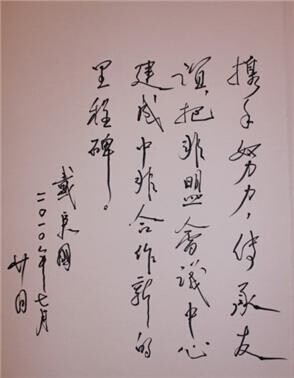 携手努力，传承友
谊，把非盟会议中心
建成中非合作新的
里程碑。
戴秉国
二〇一〇年七月
廿日